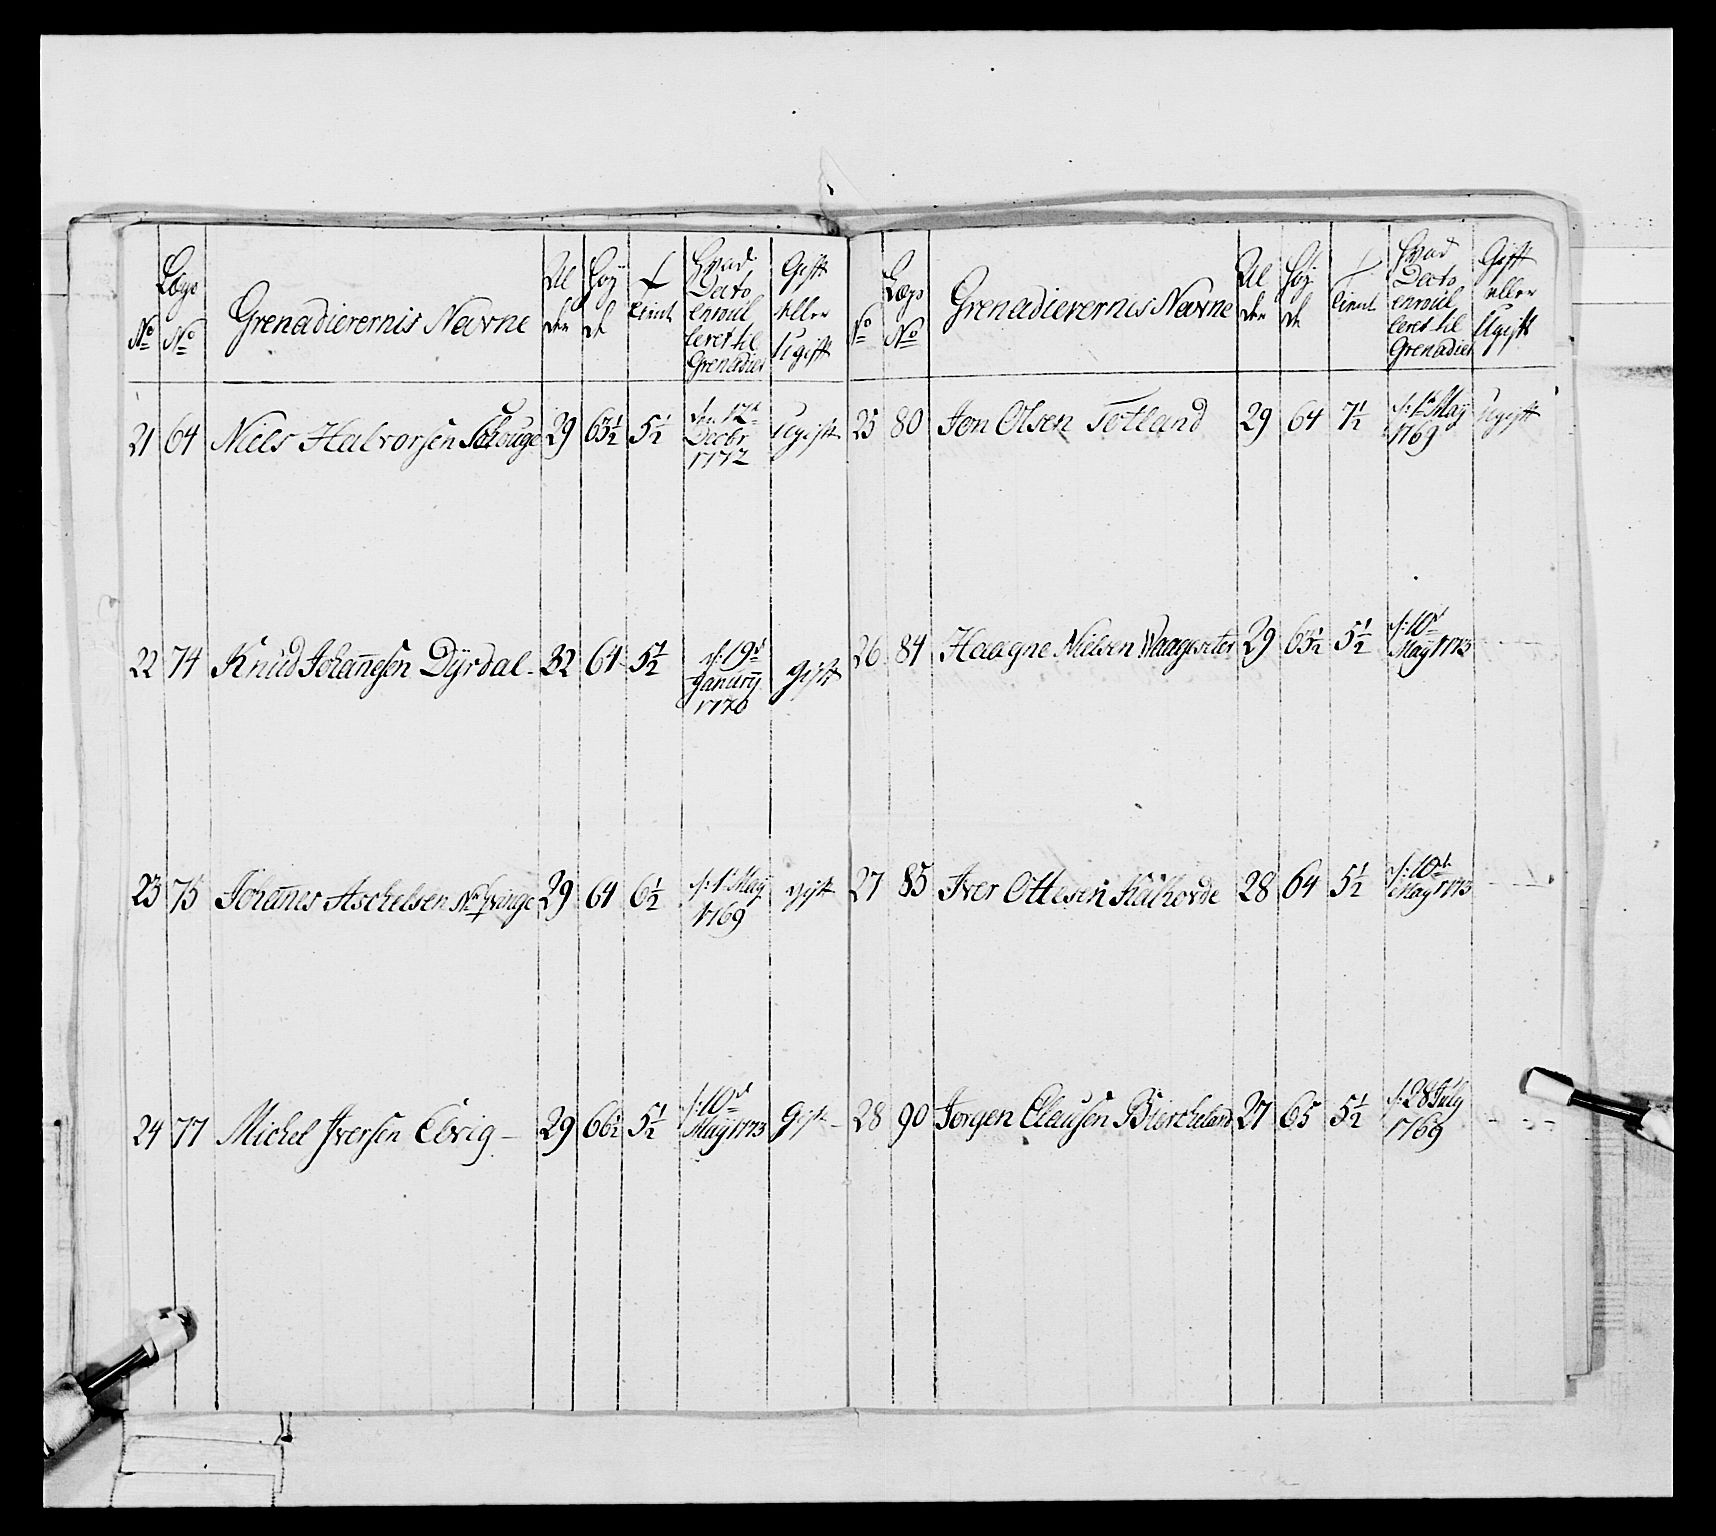 No
Lægs No
Grenadierernis Navne
Al der
Høy de
Tient
Hvad Dato enroul leret til Grenadier
Gift eller Ugift
21 64 Niels Halvorsen Schouge 29 63½ 5½ den 12t Decbr 1772 Ugift
22 74 Knud Johannesen Dÿrdal 32 64 5½ d: 19d Januarÿ 1770 Gift
23 75 Johannes Aschelsen 29 64 6½ d: 1t May 1769 Ugift
24 77 Michel Iversen Ebrig 29 66½ 5½ d: 10d May 1773 Gift
No
Lægs No
Grenadierernis Navne
Al der
Høy de
Tient
Hvad Dato enroul leret til Grenadier
Gift eller Ugift
25 80 Jon Olsen Totland 29 64 7½ d: 1t May 1769 Ugift
26 84 Haagne Nielsen Waageseter 29 63½ 5½ d: 10d May 1773
27 85 Iver Ottesen 28 64 5½ d: 10d May 1773
28 90 Jørgen Clausen Bierckeland 27 65 5½ d: 28 July 1769